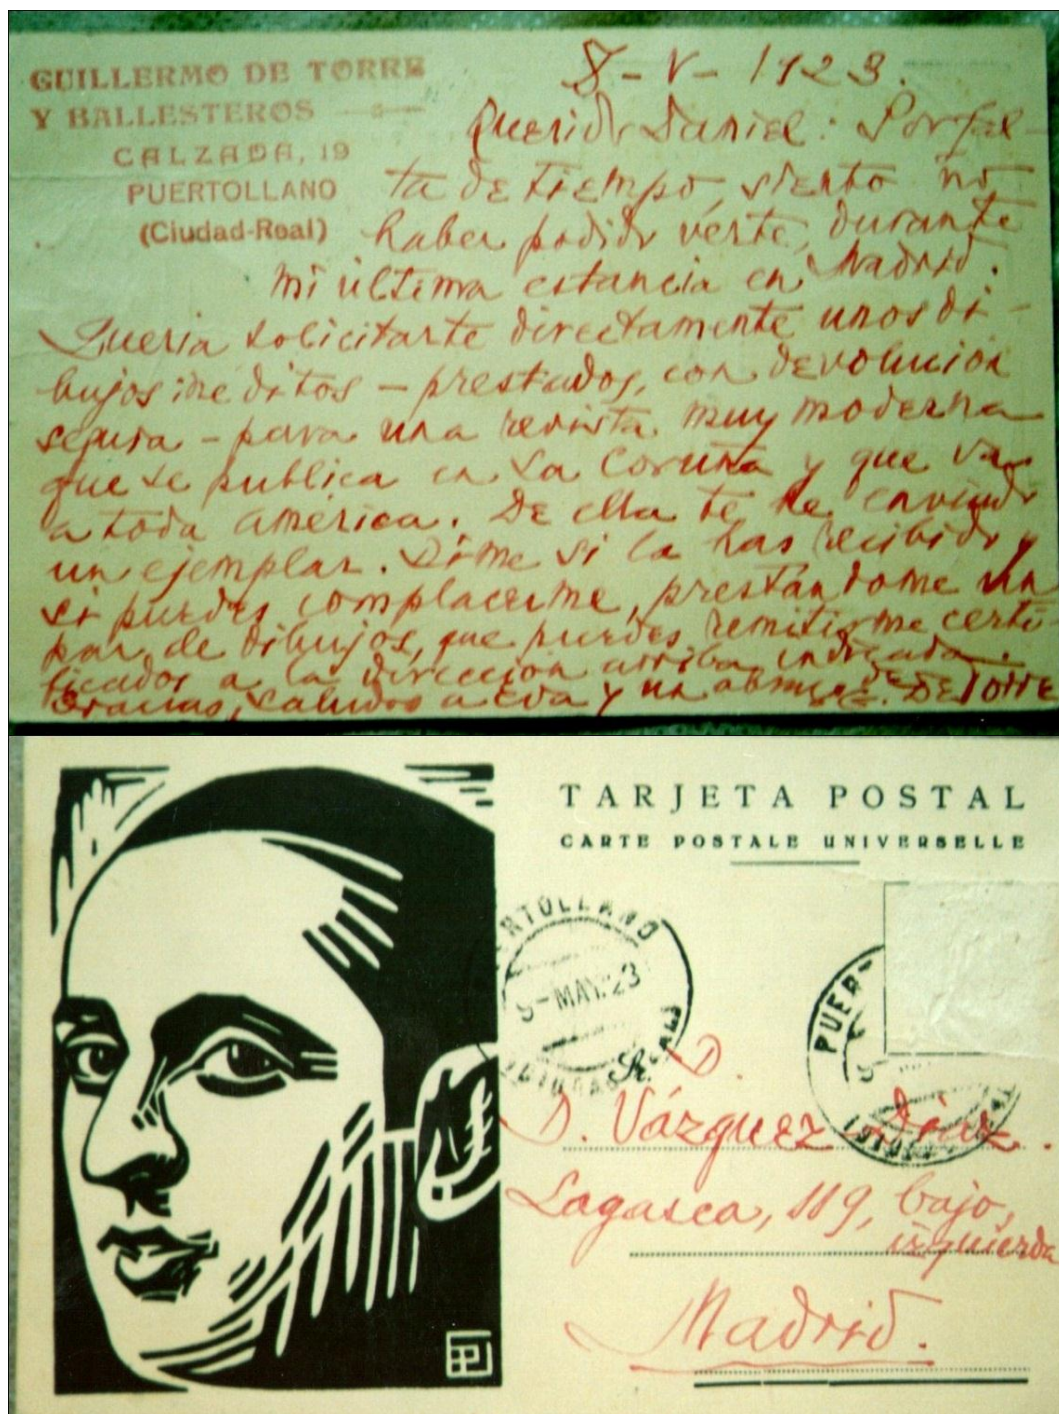 GUILLERMO DE TORRE
Y BALLESTEROS
CALZADA, 19
PUERTOLLANO
(Ciudad-Real)
8-V-1923.
Querido Daniel: Por fal-
ta de tiempo, siento no
haber podido verte, durante
mi última estancia en Madrid.
Queria solicitarte directamente unos di-
bujos inéditos - prestados, con devolución
segura - para una revista muy moderna
que se publica en La Coruña y que va
a toda América. De ella te he enviado
un ejemplar. Dime si la has recibido y
si puedes complacerme, prestándome un
par de dibujos, que puedes remitirme certi-
ficados a la dirección arriba indicada.
Gracias, saludos a Eva y un abrazo de G. DE TORRE
TARJETA POSTAL
CARTE POSTALE UNIVERSELLE
ERTOLLANO
9-MAY.23
PUER-
Sr. D.
D. Vázquez Díaz.
Lagasca, 119, bajo,
izquierda
Madrid.